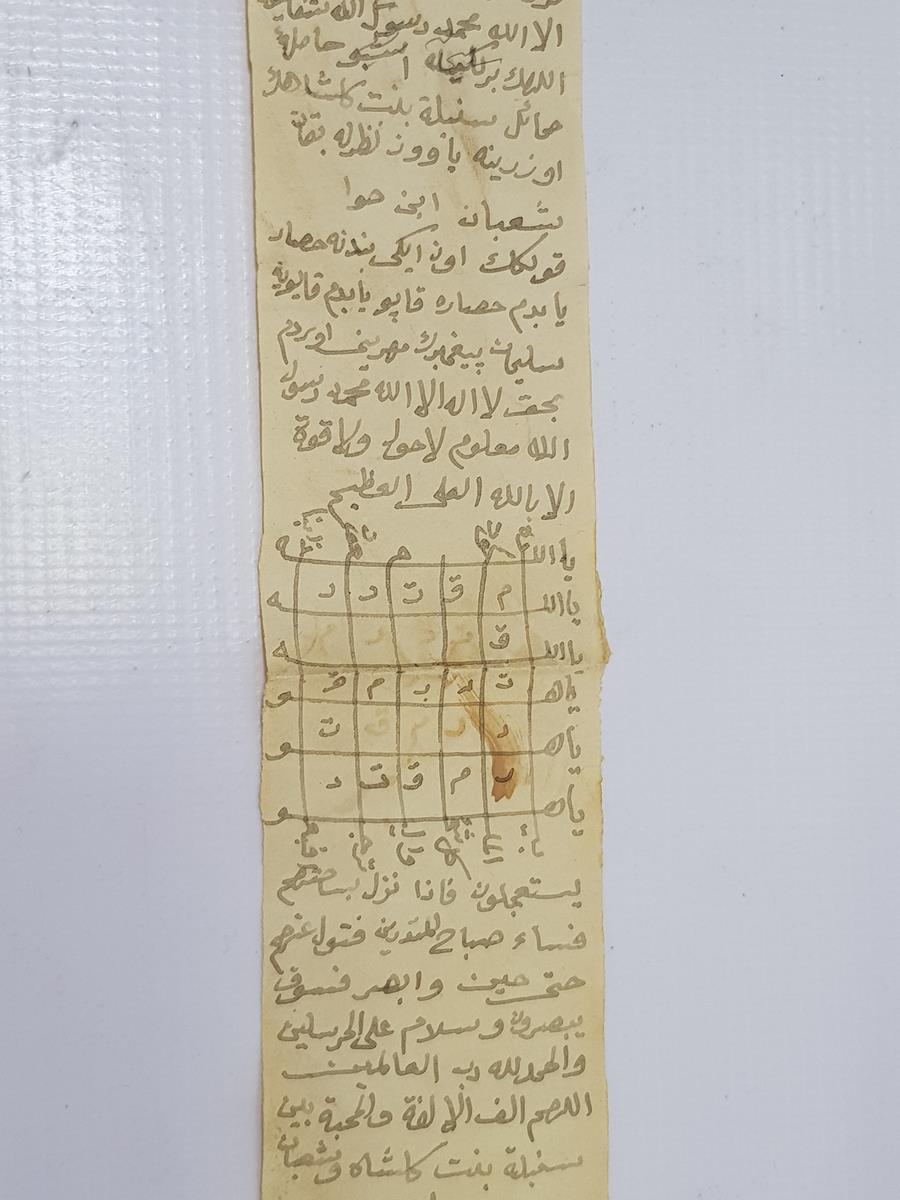 الا الله محمد رسول الله
حامله
حمائل سنبلة بنت كلشاهك
اوزرينه ياووز نظرله بقان
شعبان ابن حوا
قوللك اون ايكى بندنه حصار
يابدم حصاره قاپو يابدم قاپويه
سليمان پيغمبرك مهرينى اوردم
بحق لا اله الا الله محمد رسول
الله معلوم لاحول ولا قوة
الا بالله العلى العظيم
يا الله
يا الله م ق ت د د ه
يا الله ق ه
ياه ت د ب م ق و
ياه د د م ق ت و
ياه ب م ق ت د و
يستعجلون فاذا نزل بساحتهم
فساء صباح المنذرين فتول عنهم
حتى حين وابصر فسوف
يبصرون وسلام على المرسلين
والحمد لله رب العالمين
اللهم الف الالفة والمحبة بين
سنبلة بنت كلشاه وشعبان